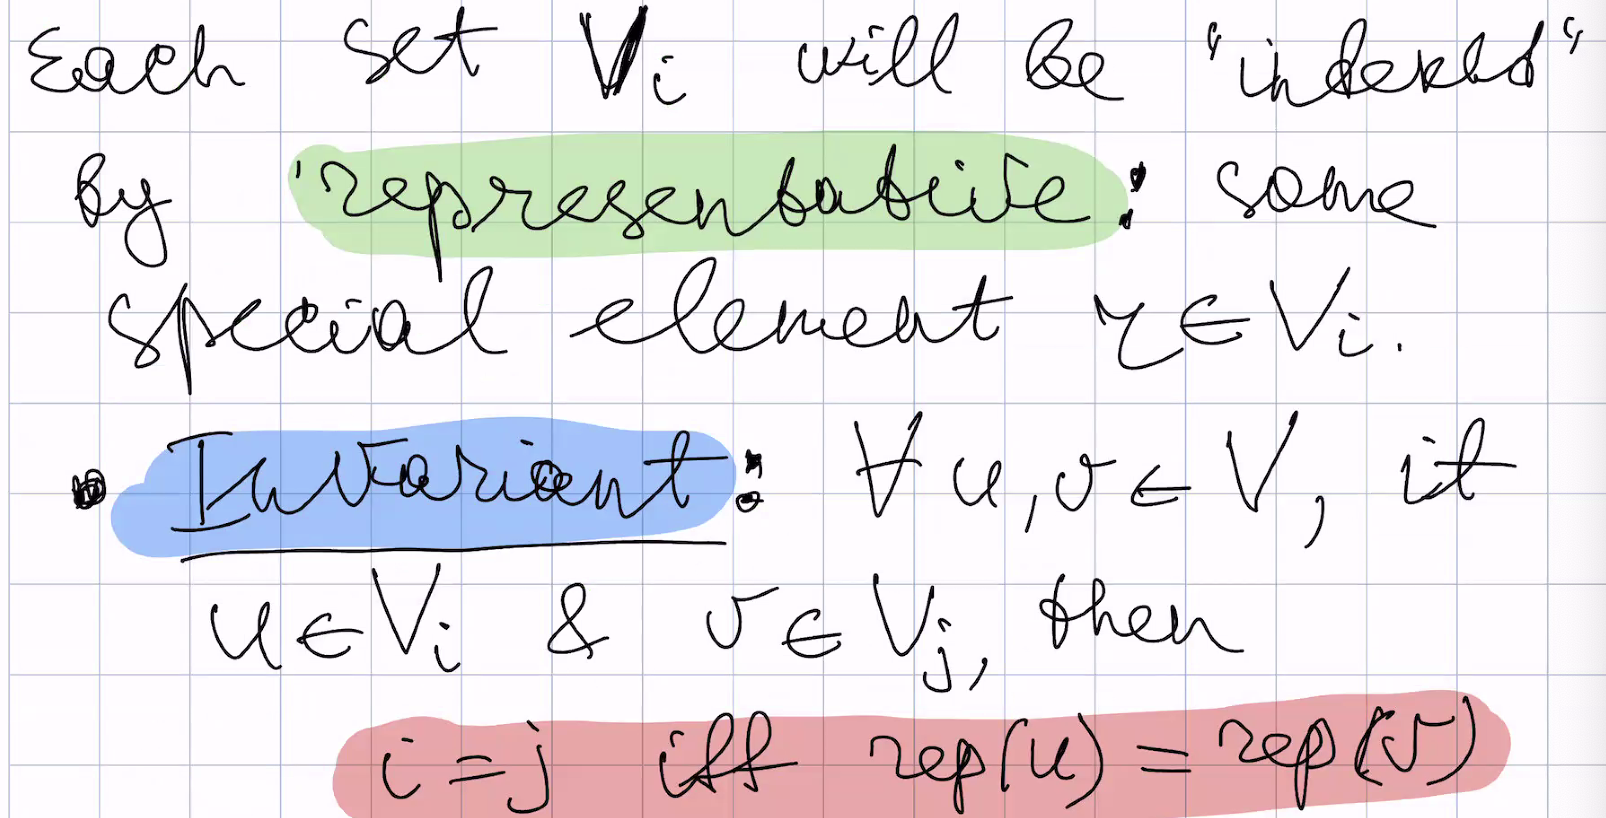 Each set Vᵢ will be "indexed"
by representative: some
special element r ∈ Vᵢ.
• Invariant: ∀ u, v ∈ V, if
u ∈ Vᵢ & v ∈ Vⱼ, then
i = j iff rep(u) = rep(v)